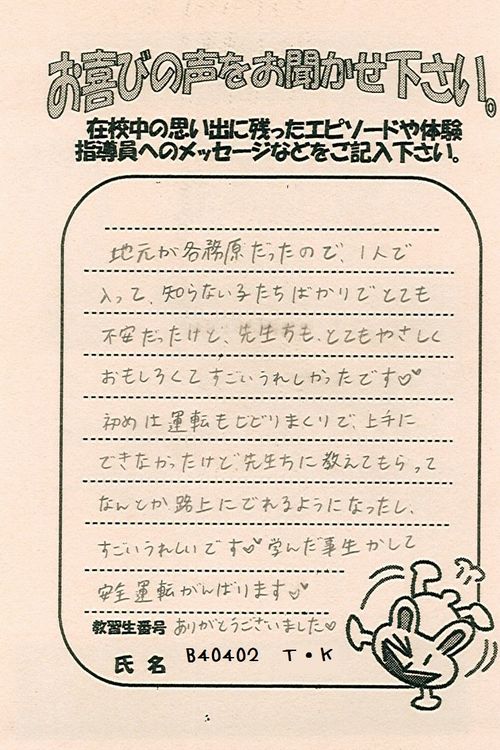 お喜びの声をお聞かせ下さい。
在校中の思い出に残ったエピソードや体験
指導員へのメッセージなどをご記入下さい。
地元が各務原だったので、1人で
入って、知らない子たちばかりでとても
不安だったけど、先生方も、とてもやさしく
おもしろくてすごいうれしかったです♡♥
初めは運転もビビりまくりで、上手に
できなかったけど、先生方に教えてもらって
なんとか路上にでれるようになったし、
すごいうれしいです♡♥学んだ事生かして
安全運転がんばります♡♥
教習生番号 ありがとうございました♡
氏名 B40402 T・K